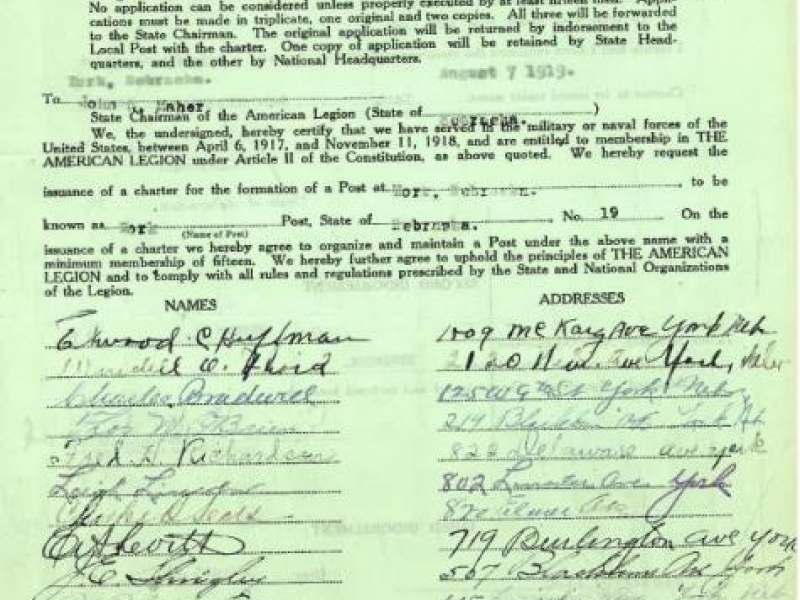 No application can be considered unless properly executed by at least fifteen men. Appli-
cations must be made in triplicate, one original and two copies. All three will be forwarded
to the State Chairman. The original application will be returned by indorsement to the
Local Post with the charter. One copy of application will be retained by State Head-
quarters, and the other by National Headquarters.
York, Nebraska. August 7 1919.
To John G. Maher,
State Chairman of the American Legion (State of Nebraska. )
We, the undersigned, hereby certify that we have served in the military or naval forces of the
United States, between April 6, 1917, and November 11, 1918, and are entitled to membership in THE
AMERICAN LEGION under Article II of the Constitution, as above quoted. We hereby request the
issuance of a charter for the formation of a Post at York, Nebraska. to be
known as York Post, State of Nebraska. No. 19 On the
(Name of Post)
issuance of a charter we hereby agree to organize and maintain a Post under the above name with a
minimum membership of fifteen. We hereby further agree to uphold the principles of THE AMERICAN
LEGION and to comply with all rules and regulations prescribed by the State and National Organizations
of the Legion.
NAMES ADDRESSES
Elwood C Huffman 1009 McKarg Ave York Neb
York,
Charles Bradwell York Nebr
214 York
Fred D. Richardson 822 Delaware ave york
Leigh Lincoln 802 Ave York
Sears Ave
Hewitt 719 Burlington ave York
J. E. Shrigley 507 Blackburn Ave York